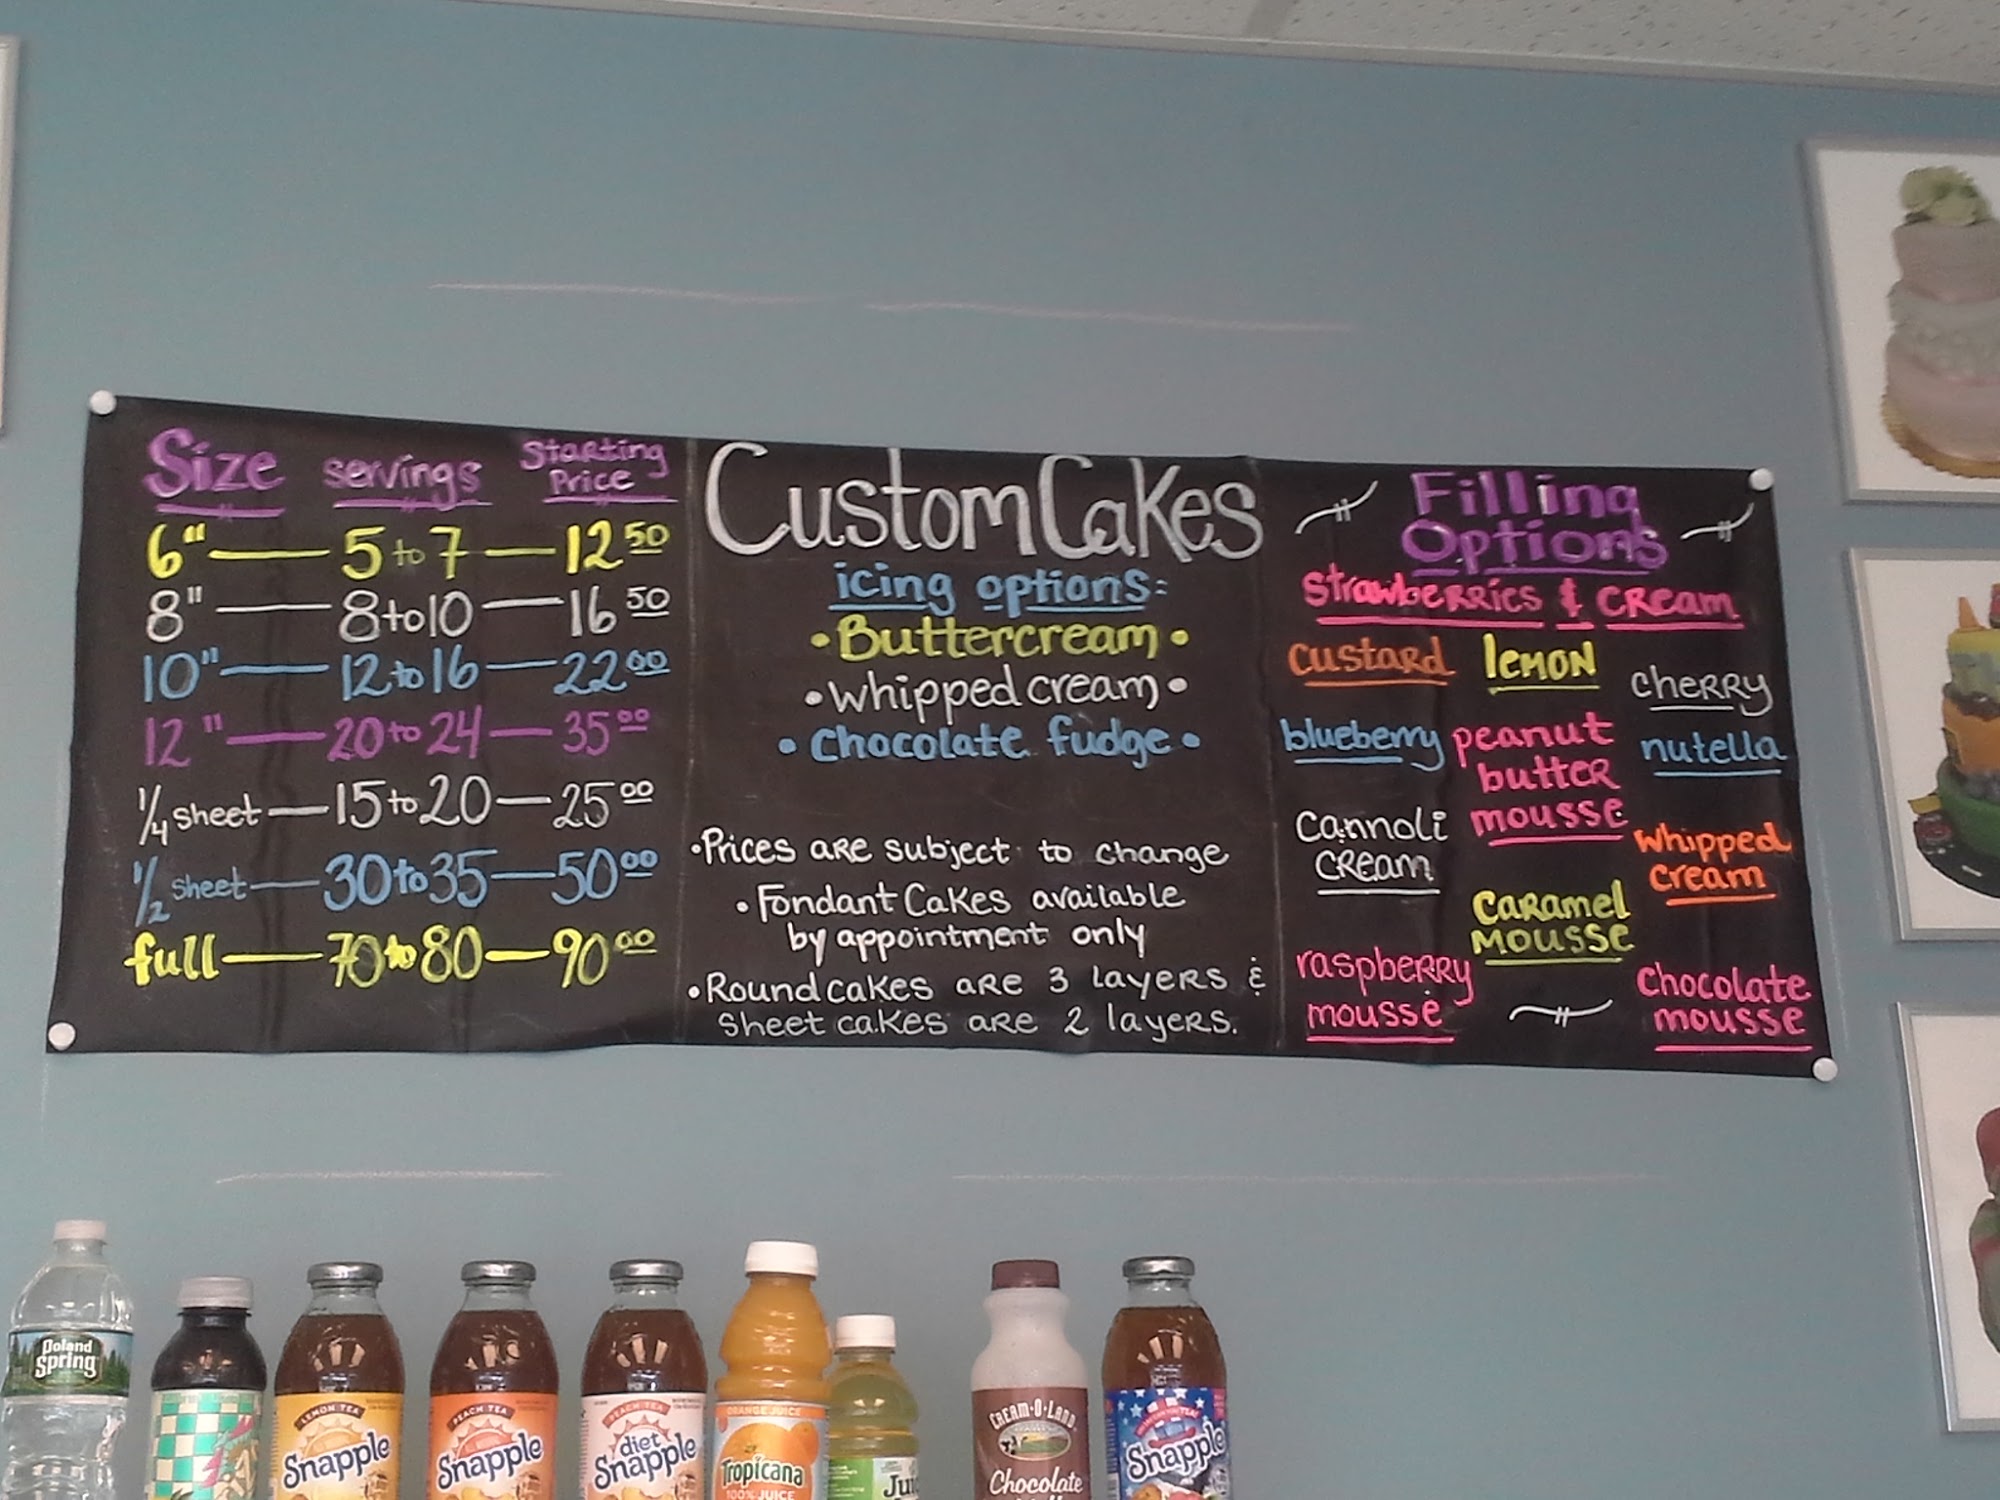 Size servings Starting Price
6" 5 to 7 12 50
8" 8 to 10 16 50
10" 12 to 16 22 00
12" 20 to 24 35 00
1/4 sheet 15 to 20 25 00
1/2 sheet 30 to 35 50 00
full 70 to 80 90 00
Custom Cakes
icing options:
• Buttercream •
• whipped cream •
• Chocolate fudge •
• Prices are subject to change
• Fondant Cakes available
by appointment only
• Round cakes are 3 layers &
Sheet cakes are 2 layers.
Filling
Options
Strawberries & cream
custard lemon cherry
blueberry peanut butter mousse nutella
Cannoli
cream
whipped
cream
Caramel
mousse
raspberry
mousse
Chocolate
mousse
Poland
Spring
LEMON TEA
Snapple
PEACH TEA
Snapple
PEACH TEA
diet
Snapple
ORANGE JUICE
Tropicana
100% JUICE
CREAM-O-LAND
Chocolate
Snapple